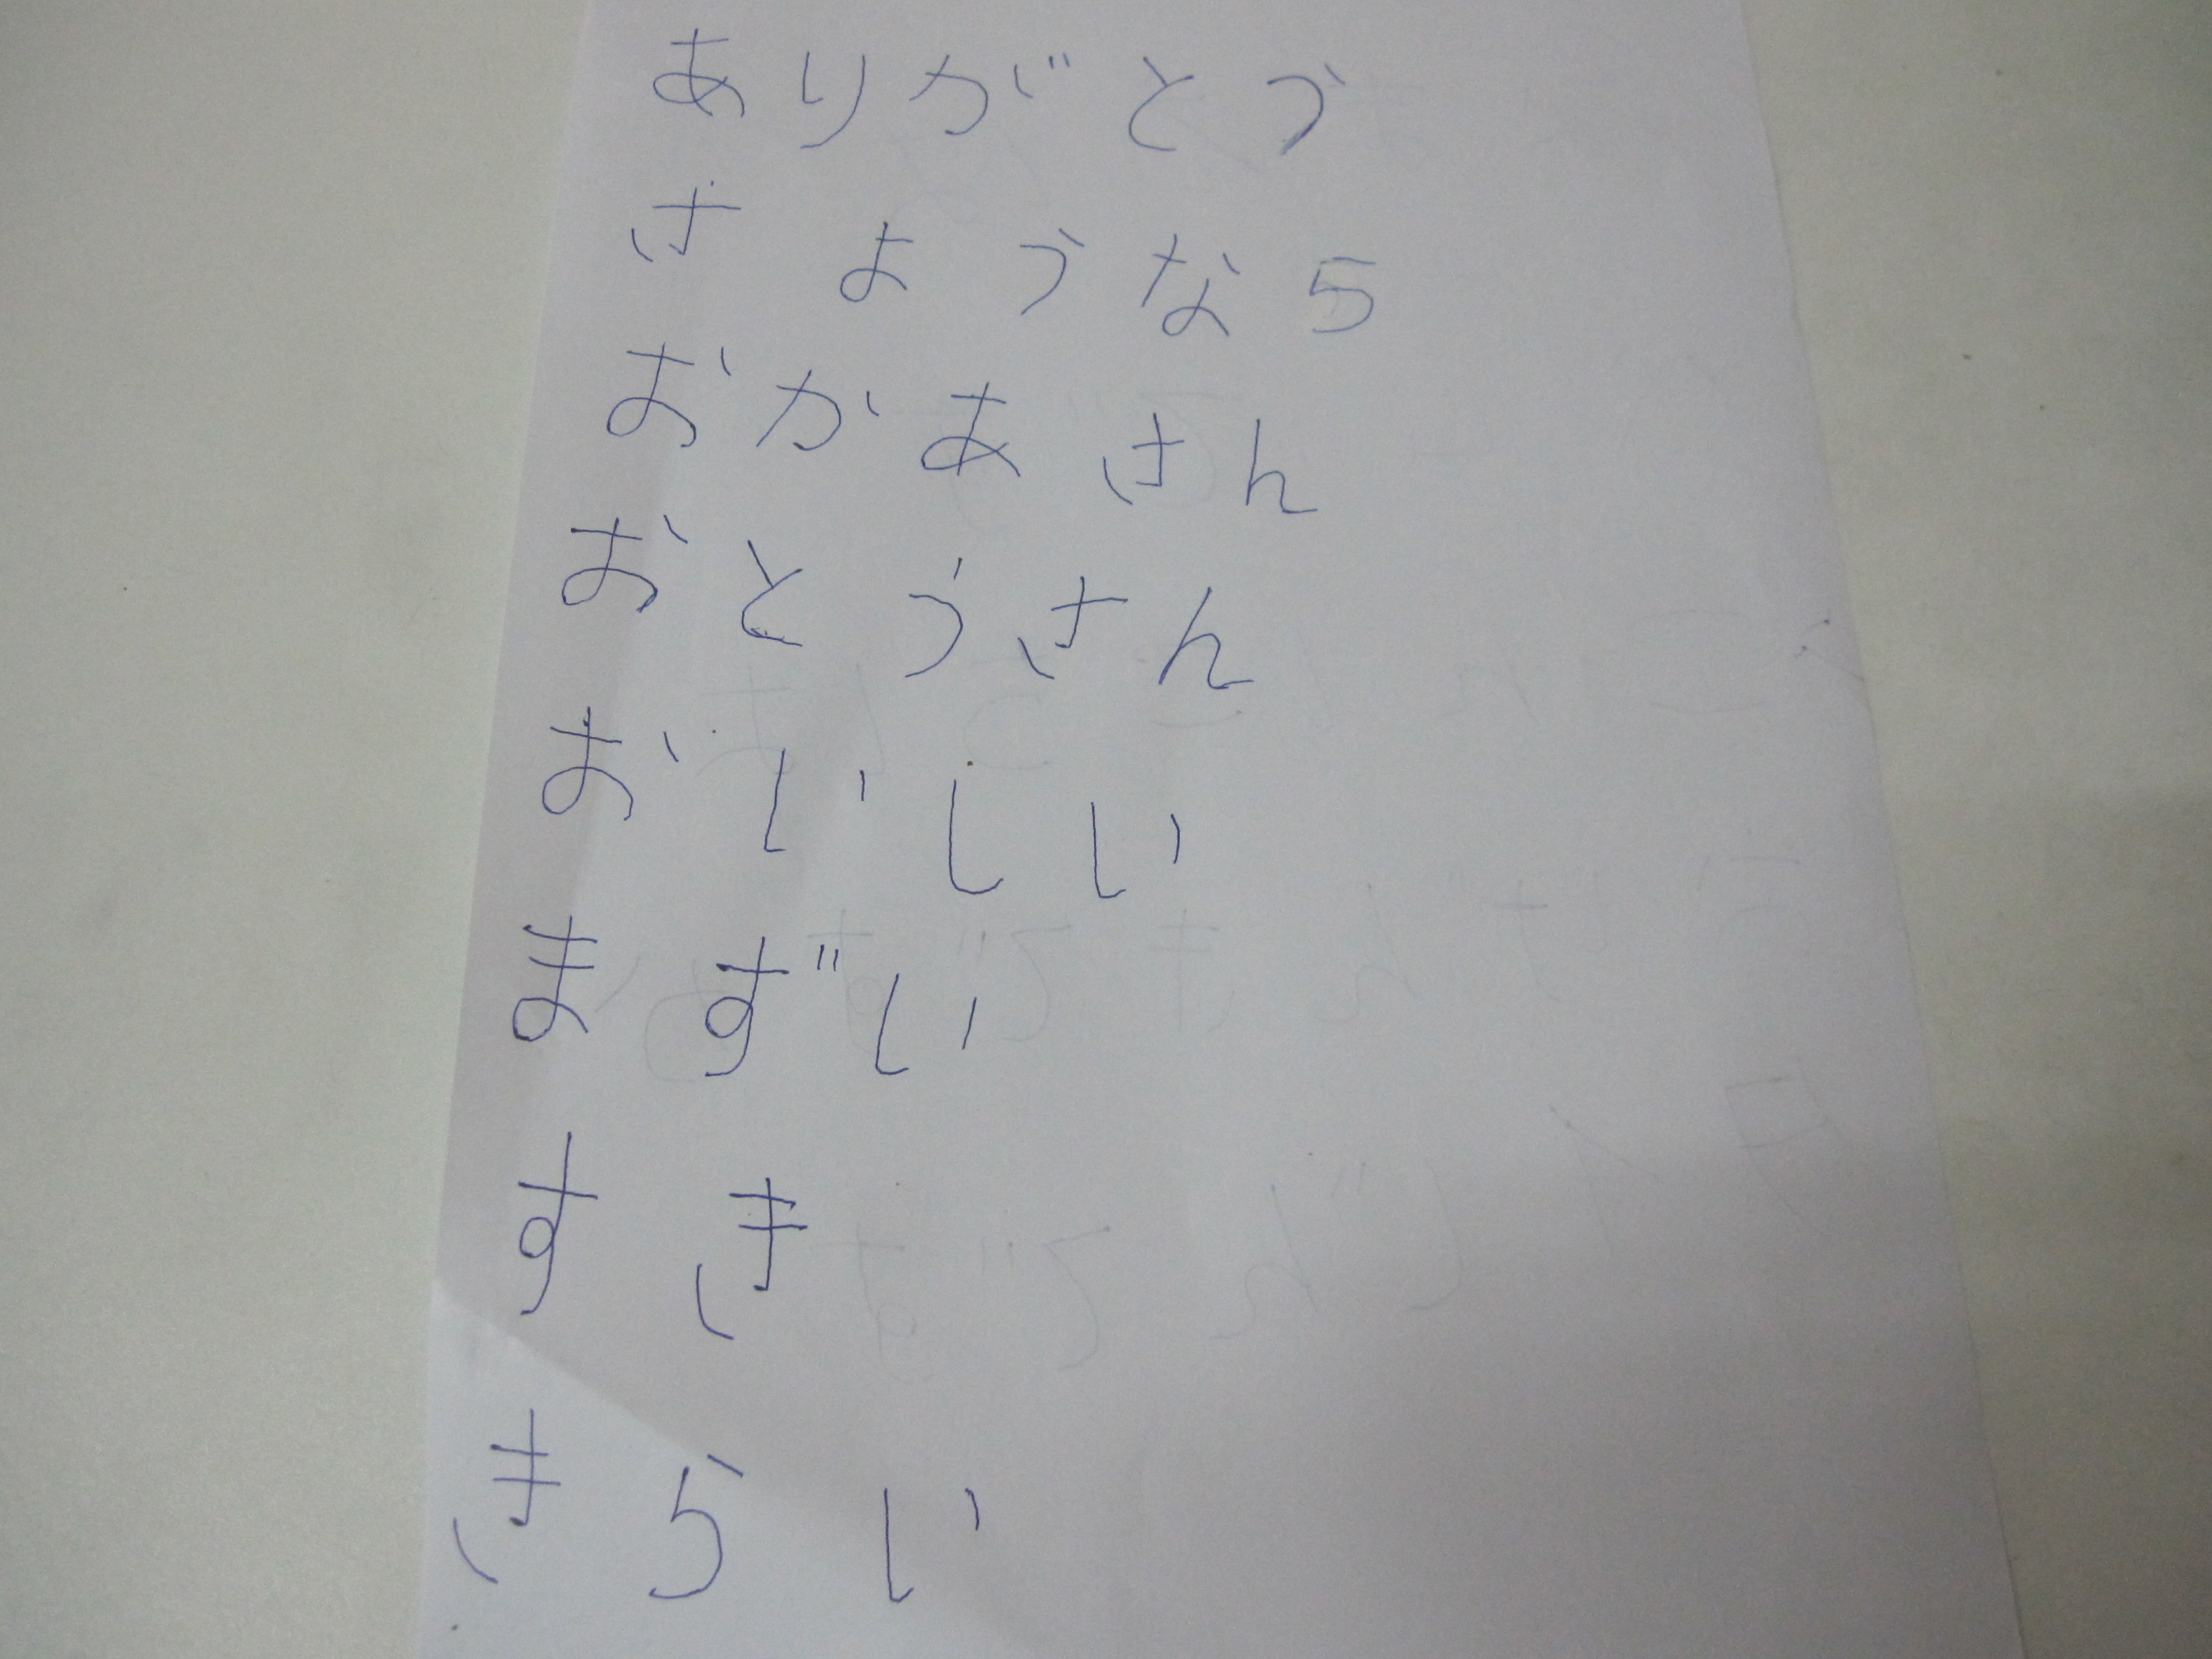 ありがとう
さようなら
おかあさん
おとうさん
おいしい
まずい
すき
きらい